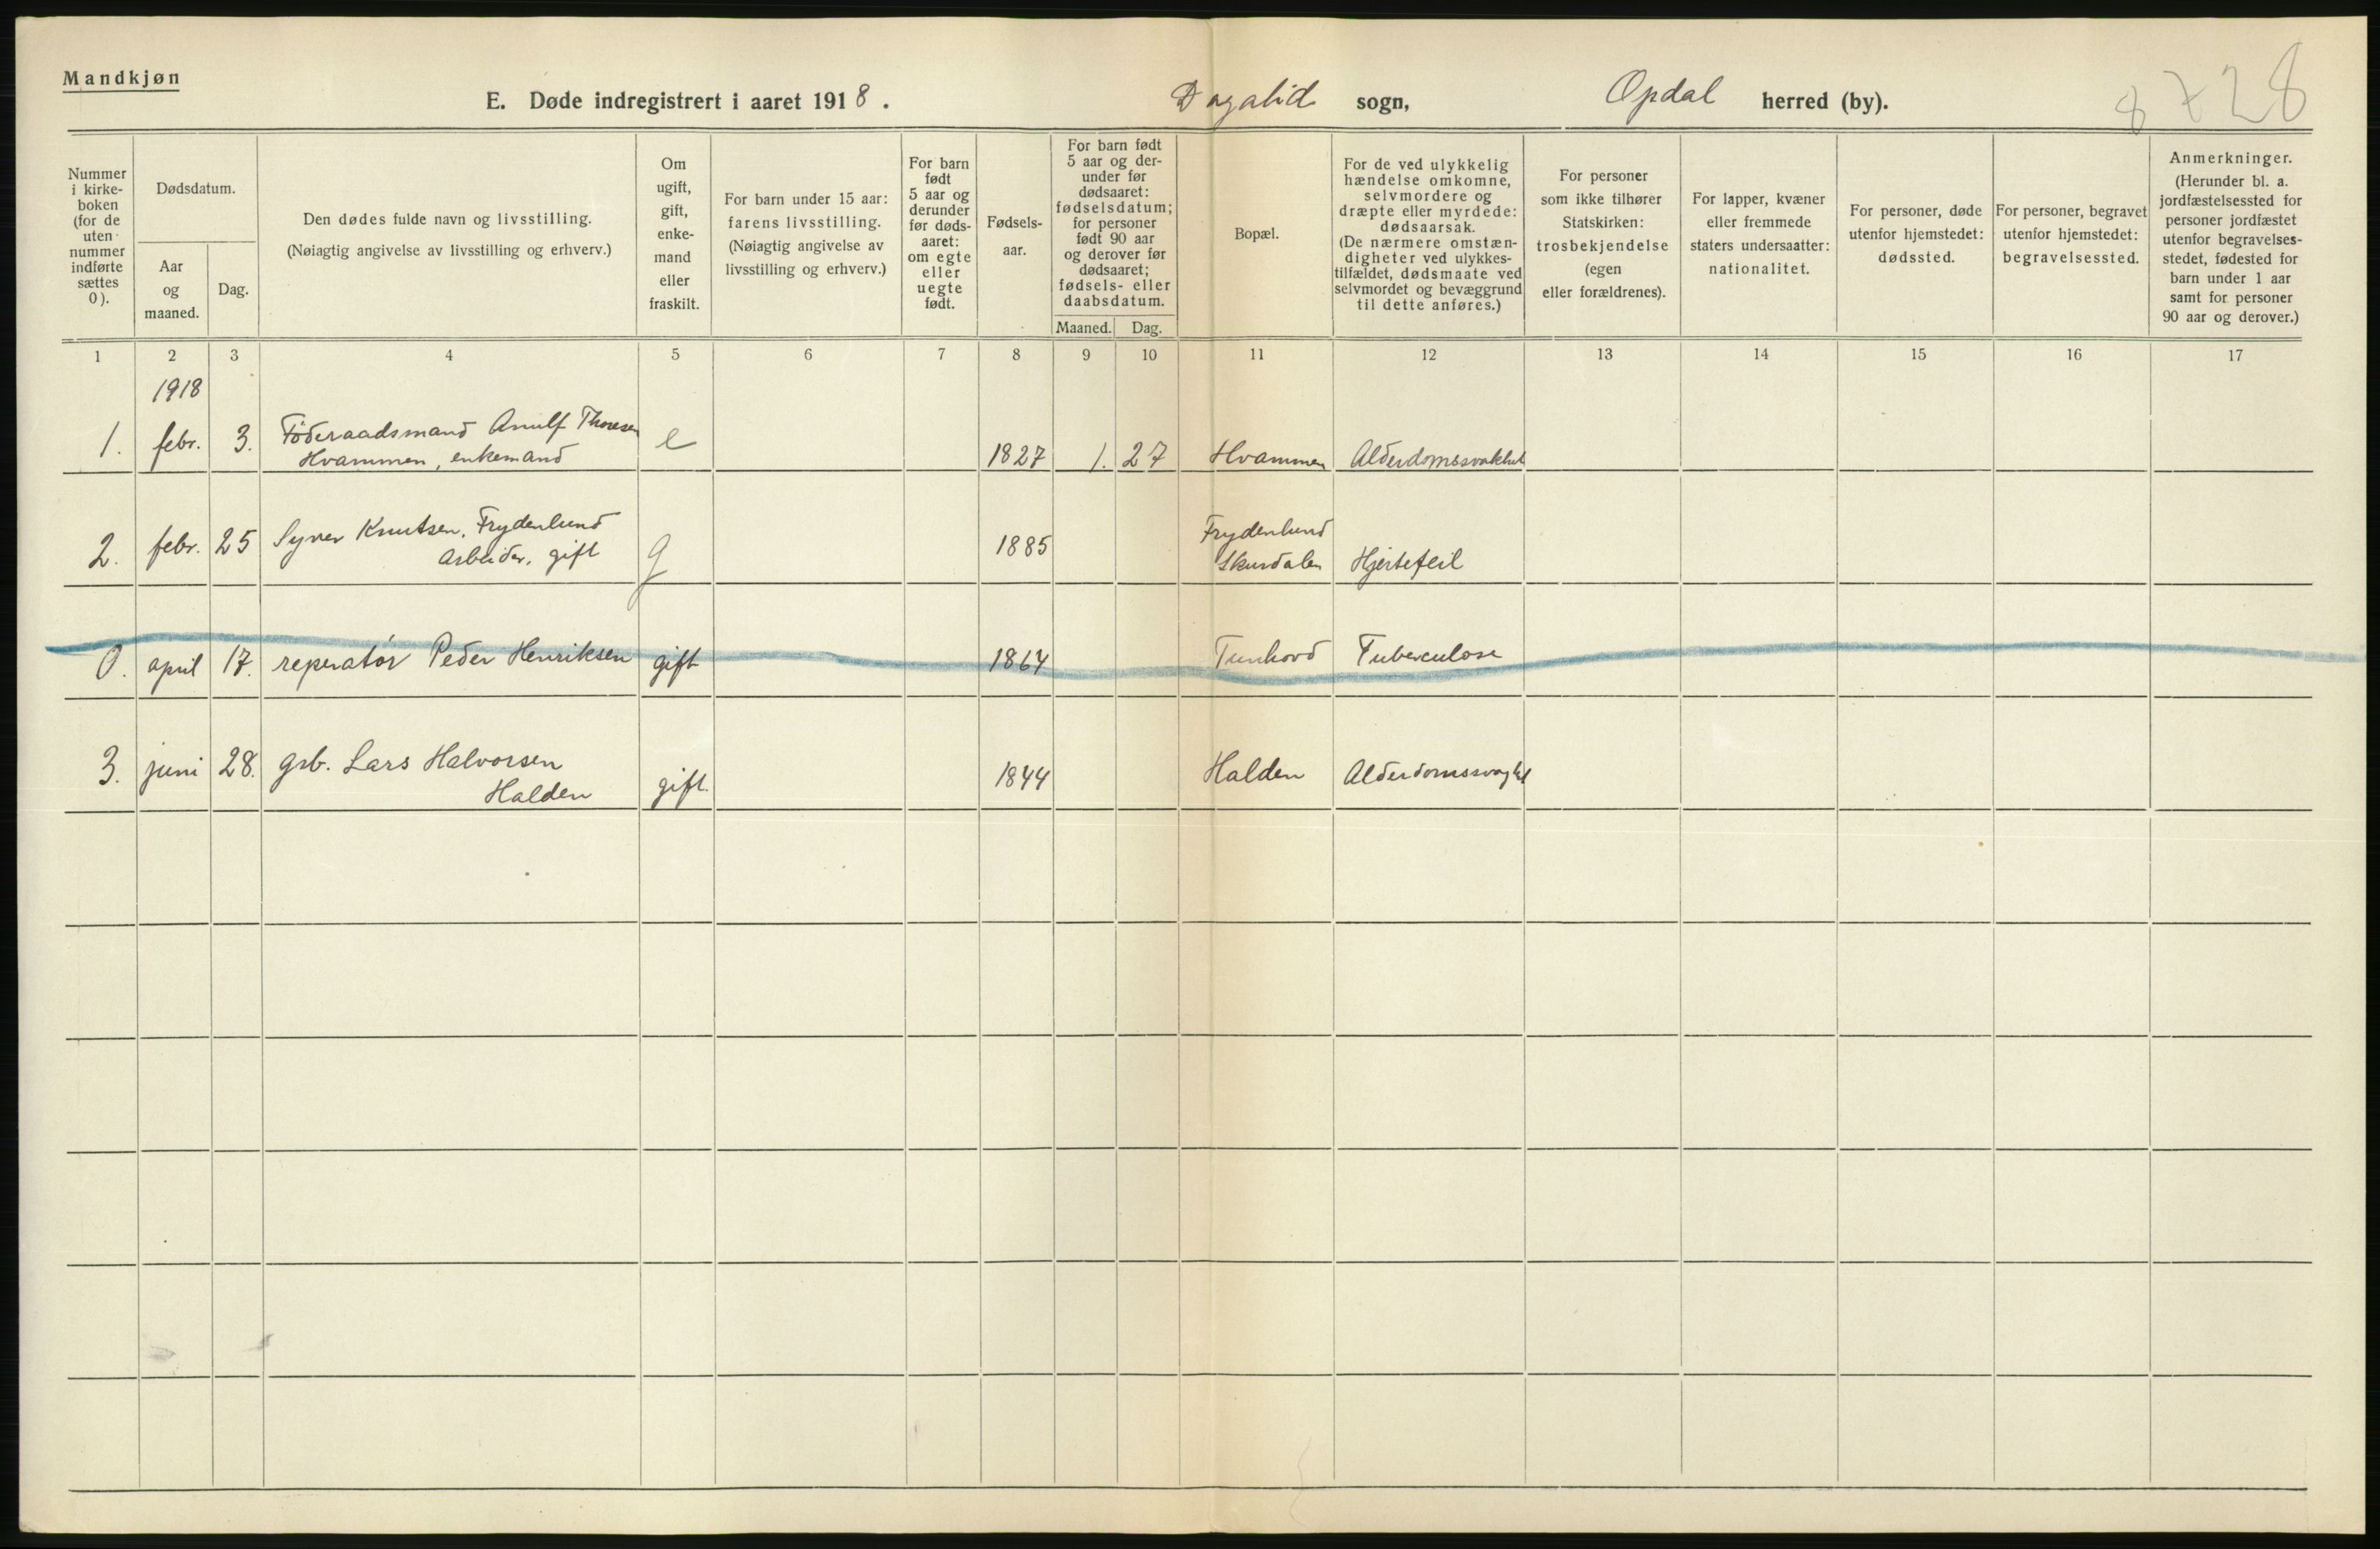 Mandkjøn
E. Døde indregistrert i aaret 1918. Dagalid sogn, Opdal herred (by). 8728
Nummer i kirke-boken (for de uten nummer indførte sættes 0).
Dødsdatum.
Aar og maaned.
Dag.
Den dødes fulde navn og livsstilling.
(Nøiagtig angivelse av livsstilling og erhverv.)
Om ugift, gift, enke-mand eller fraskilt.
For barn under 15 aar: farens livsstilling.
(Nøiagtig angivelse av livsstilling og erhverv.)
For barn født 5 aar og derunder før døds-aaret: om egte eller uegte født.
Fødsels-aar.
For barn født 5 aar og der-under før dødsaaret: fødselsdatum; for personer født 90 aar og derover før dødsaaret; fødsels- eller daabsdatum.
Maaned. Dag.
Bopæl.
For de ved ulykkelig hændelse omkomne, selvmordere og dræpte eller myrdede: dødsaarsak.
(De nærmere omstæn-digheter ved ulykkes-tilfældet, dødsmaate ved selvmordet og bevæggrund til dette anføres.)
For personer som ikke tilhører Statskirken: trosbekjendelse (egen eller forældrenes).
For lapper, kvæner eller fremmede staters undersaatter: nationalitet.
For personer, døde utenfor hjemstedet: dødssted.
For personer, begravet utenfor hjemstedet: begravelsessted.
Anmerkninger.
(Herunder bl. a. jordfæstelsessted for personer jordfæstet utenfor begravelses-stedet, fødested for barn under 1 aar samt for personer 90 aar og derover.)
1 2 3 4 5 6 7 8 9 10 11 12 13 14 15 16 17
1918
1. febr. 3. Föderaadsmand Arnulf Thoresen
Hvammen, enkemand e 1827 1. 27 Hvammen Alderdomssvakhet
2. febr. 25 Syver Knutsen, Frydenlund
Arbeider, gift g 1885 Frydenlund
Skurdalen Hjertefeil
0. april 17. reperatör Peder Henriksen gift 1864 Tunhovd Tuberculose
3. juni 28. gsb. Lars Halvorsen
Halden gift. 1844 Halden Alderdomssvaghet